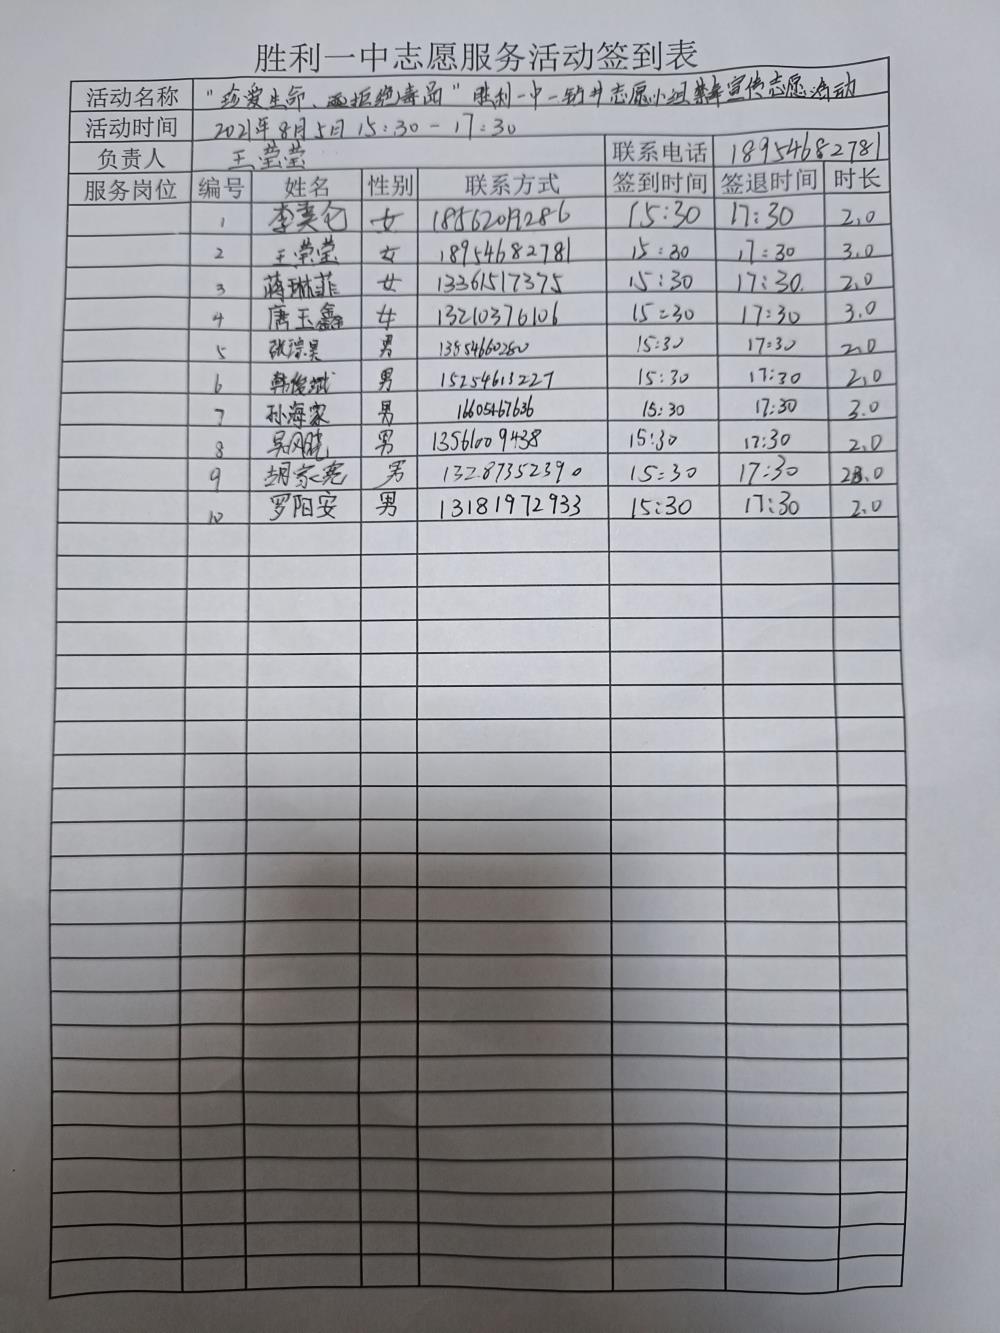 胜利一中志愿服务活动签到表
活动名称 "珍爱生命、拒绝毒品"胜利一中一钻井志愿小组禁毒宣传志愿活动
活动时间 2021年8月5日 15:30-17:30
负责人 王莹莹 联系电话 18954682781
服务岗位 编号 姓名 性别 联系方式 签到时间 签退时间 时长
1 李奕仑 女 18562019286 15:30 17:30 2.0
2 王莹莹 女 18954682781 15:30 17:30 3.0
3 蒋琳菲 女 13361517375 15:30 17:30. 2.0
4 唐玉鑫 女 13210376106 15:30 17:30 3.0
5 张琮昊 男 13954660260 15:30 17:30 2.0
6 韩俊斌 男 15254613227 15:30 17:30 2.0
7 孙海家 男 16605467636 15:30 17:30 3.0
8 吴风晓 男 13561009438 15:30 17:30 2.0
9 胡家尧 男 13287352390 15:30 17:30
10 罗阳安 男 13181972933 15:30 17:30 2.0